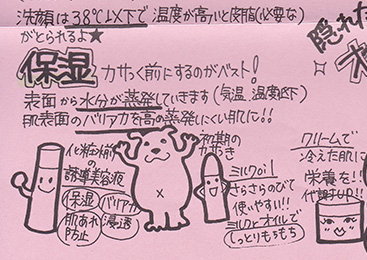 洗顔は38℃以下で 温度が高いと皮脂(必要な)
がとられるよ★
保湿 カサつく前にするのがベスト!
表面から水分が蒸発していきます(気温、温度低下)
肌表面のバリア力を高め蒸発しにくい肌に!!
化粧水前
の
誘導美容液
保湿 バリア力
肌あれ防止 浸透
初期の
カサつき
ミルクoil
さらさらのびて
使いやすい!!
ミルクorオイルで
しっとりもちもち
隠れた
クリームで
冷えた肌に
栄養を!!
代謝UP!!